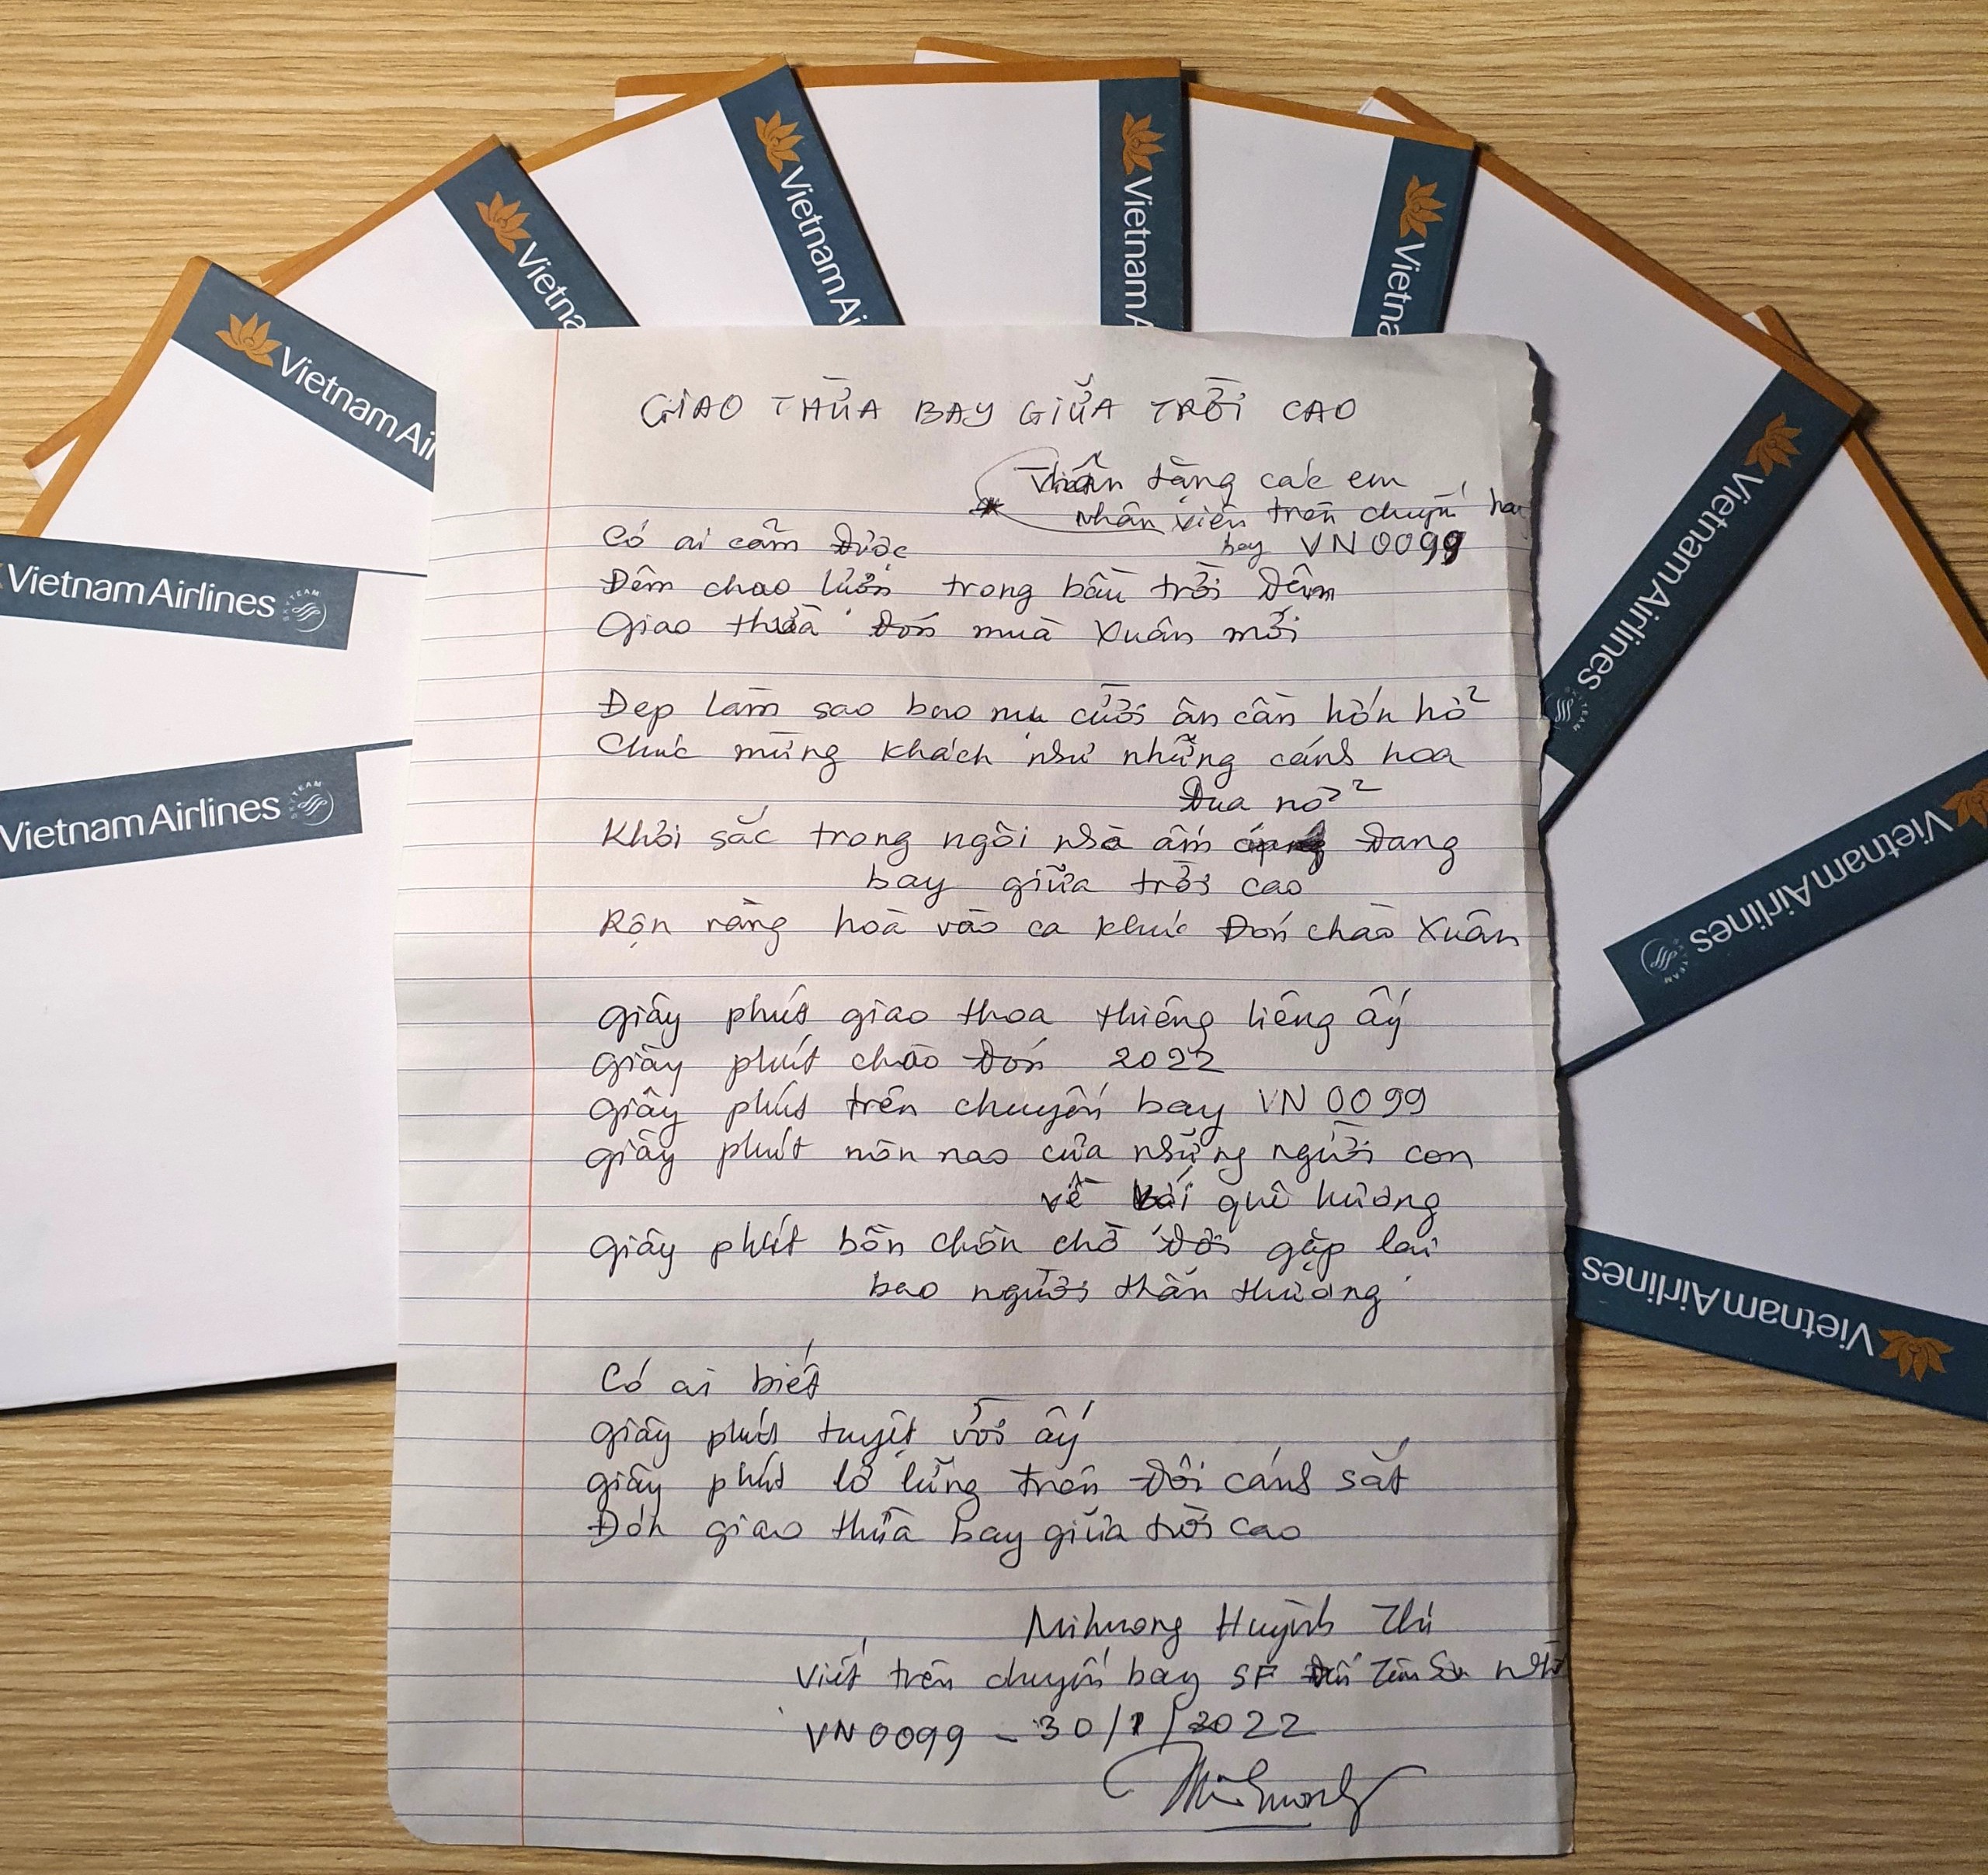 VietnamAir
Vietna
VietnamAi
Vietnam A
Vietna
VietnamAirlines
SKYTEAM
VietnamAirlines
SKYTEAM
VietnamAirlines
SKYTEAM
VietnamAirlines
SKYTEAM
VietnamAirlines
GIAO THỪA BAY GIỮA TRỜI CAO
Thân tặng các em
nhân viên trên chuyến
bay VN 0099
Có ai cảm được
Đêm chao lượn trong bầu trời đêm
Giao thừa đón mùa Xuân mới
Đẹp làm sao bao nụ cười ân cần hớn hở
Chúc mừng khách như những cánh hoa
đua nở
Khởi sắc trong ngôi nhà ấm đang
bay giữa trời cao
Rộn ràng hoà vào ca khúc đón chào Xuân
Giây phút giao thoa thiêng liêng ấy
Giây phút chào đón 2022
Giây phút trên chuyến bay VN 0099
Giây phút nôn nao của những người con
về với quê hương
Giây phút bồn chồn chờ đợi gặp lại
bao người thân thương
Có ai biết
Giây phút tuyệt vời ấy
Giây phút lơ lửng trên đôi cánh sắt
Đón giao thừa bay giữa trời cao
Mihuong Huỳnh Thi
Viết trên chuyến bay SF đến Tân Sơn Nhất
VN0099 - 30/1/2022
Mihuong